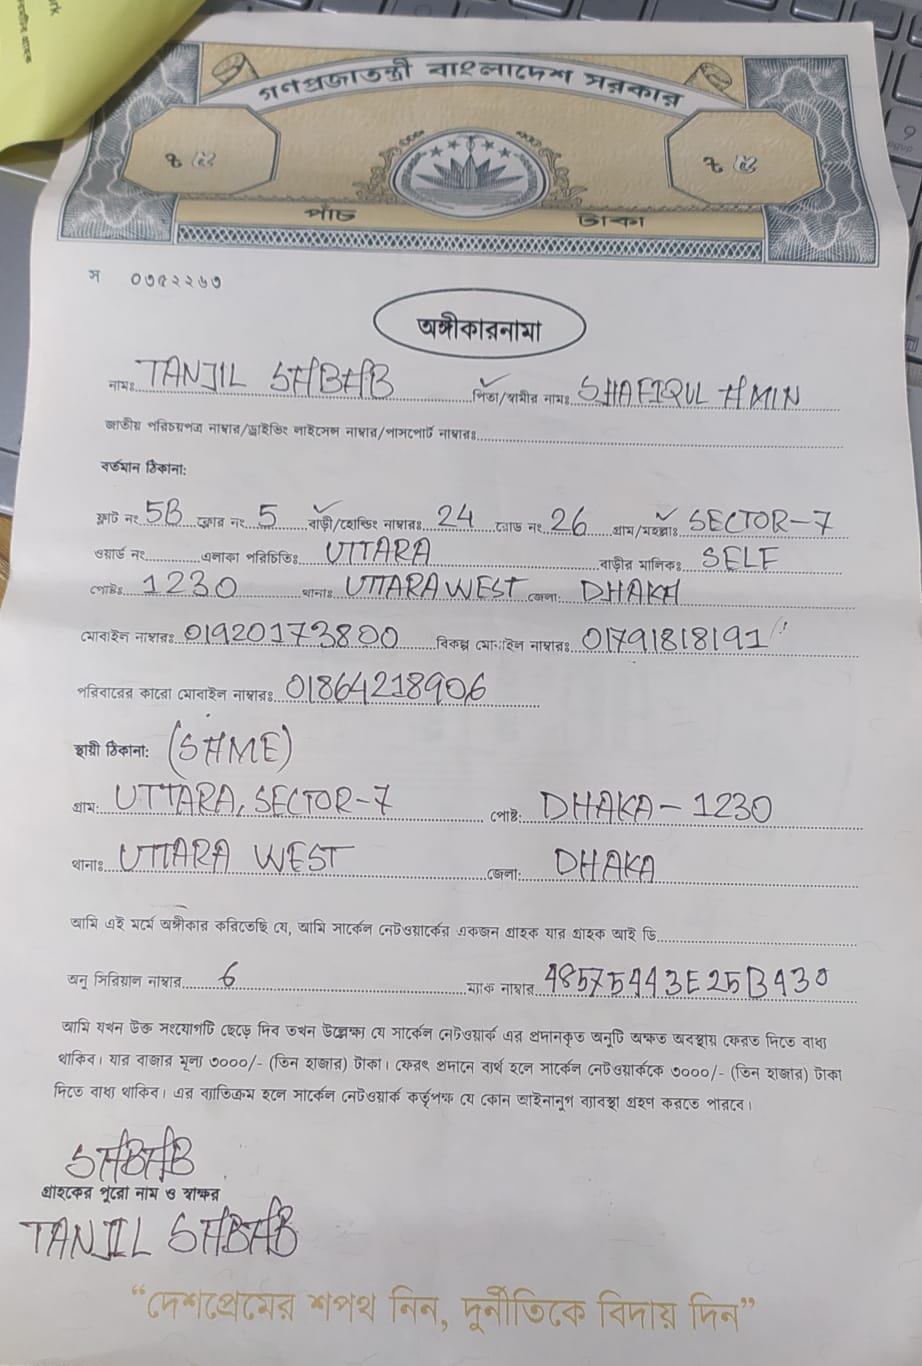 গণপ্রজাতন্ত্রী বাংলাদেশ সরকার
৳ ৫ ৳ ৫
পাঁচ টাকা
স ০৩৫২২৬৩
অঙ্গীকারনামা
নামঃ TANJIL SABAB পিতা/স্বামীর নামঃ SHAFIQUL AMIN
জাতীয় পরিচয়পত্র নাম্বার/ড্রাইভিং লাইসেন্স নাম্বার/পাসপোর্ট নাম্বারঃ
বর্তমান ঠিকানা:
ফ্লাট নং 5B ফ্লোর নং 5 বাড়ী/হোল্ডিং নাম্বারঃ 24 রোড নং 26 গ্রাম/মহল্লাঃ SECTOR-7
ওয়ার্ড নং এলাকা পরিচিতিঃ UTTARA বাড়ীর মালিকঃ SELF
পোষ্টঃ 1230 থানাঃ UTTARA WEST জেলা: DHAKA
মোবাইল নাম্বারঃ 01920173800 বিকল্প মোবাইল নাম্বারঃ 01791818191
পরিবারের কারো মোবাইল নাম্বারঃ 01864218906
স্থায়ী ঠিকানা: (SAME)
গ্রাম: UTTARA, SECTOR-7 পোষ্ট: DHAKA-1230
থানাঃ UTTARA WEST জেলা: DHAKA
আমি এই মর্মে অঙ্গীকার করিতেছি যে, আমি সার্কেল নেটওয়ার্কের একজন গ্রাহক যার গ্রাহক আই ডি
অনু সিরিয়াল নাম্বার 6 ম্যাক নাম্বার 48575443E25B430
আমি যখন উক্ত সংযোগটি ছেড়ে দিব তখন উল্লেক্ষ্য যে সার্কেল নেটওয়ার্ক এর প্রদানকৃত অনুটি অক্ষত অবস্থায় ফেরত দিতে বাধ্য
থাকিব। যার বাজার মূল্য ৩০০০/- (তিন হাজার) টাকা। ফেরৎ প্রদানে ব্যর্থ হলে সার্কেল নেটওয়ার্ককে ৩০০০/- (তিন হাজার) টাকা
দিতে বাধ্য থাকিব। এর ব্যাতিক্রম হলে সার্কেল নেটওয়ার্ক কর্তৃপক্ষ যে কোন আইনানুগ ব্যাবস্থা গ্রহণ করতে পারবে।
SABAB
গ্রাহকের পুরো নাম ও স্বাক্ষর
TANJIL SABAB
“দেশপ্রেমের শপথ নিন, দুর্নীতিকে বিদায় দিন”